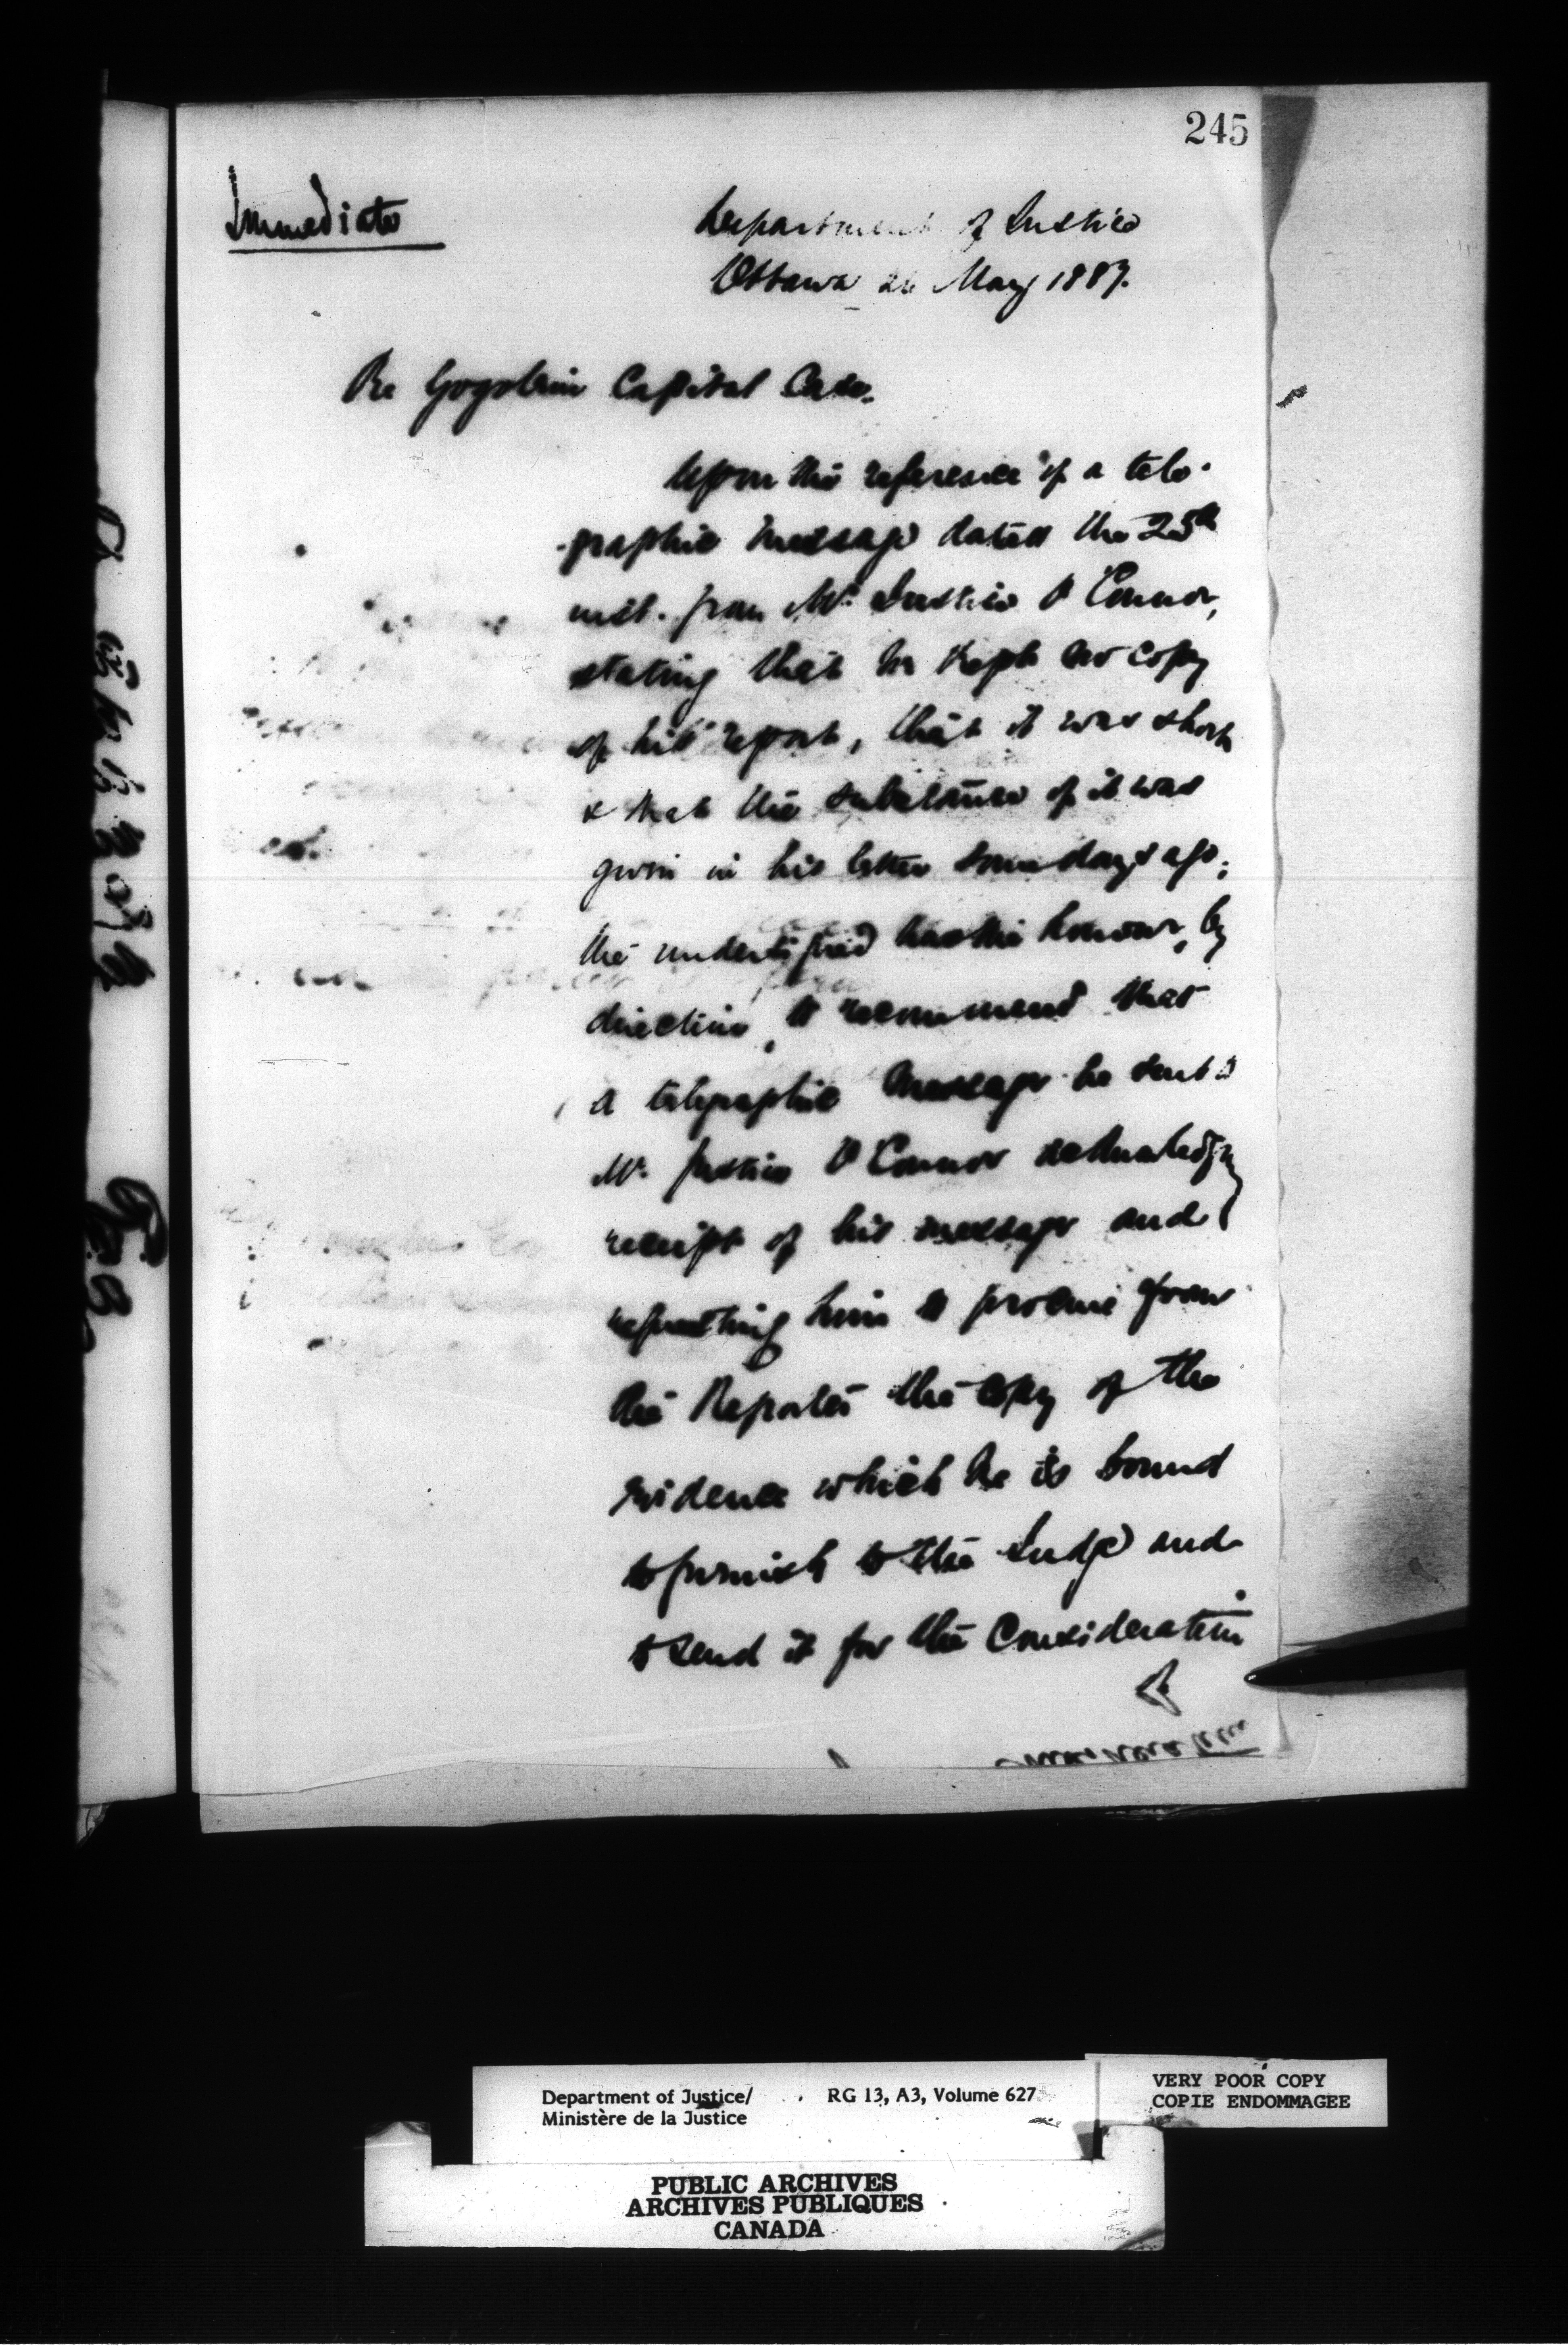 245
Immediate
Department of Justice
Ottawa 26 May 1887.
Re Capital Case.
Upon the reference of a tele-
-graphic message dated the 25th
inst. from Mr. Justice O'Connor,
stating that he kept no copy
of his report, that it was short
& that the substance of it was
given in his letter some days ago;
the undersigned has the honour, by
direction, to recommend that
a telegraphic message be sent to
Mr. Justice O'Connor acknowledging
receipt of his message and
requesting him to procure from
the Reporter the copy of the
evidence which he is bound
to furnish to the Judge and
to send it for the Consideration
Department of Justice/ RG 13, A3, Volume 627
Ministère de la Justice
VERY POOR COPY
COPIE ENDOMMAGEE
PUBLIC ARCHIVES
ARCHIVES PUBLIQUES
CANADA